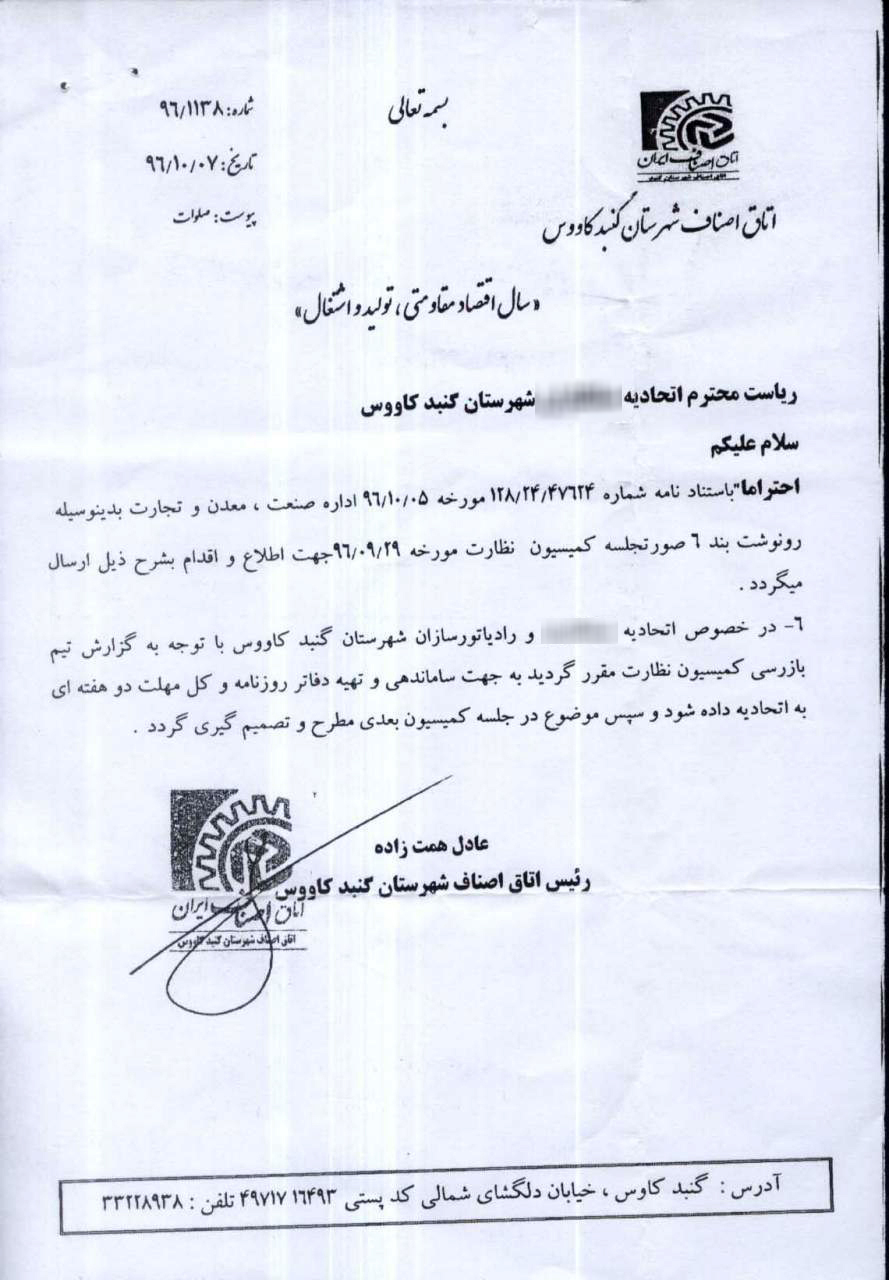 بسمه تعالی
شماره: ۹۶/۱۱۳۸
تاریخ: ۹۶/۱۰/۰۷
پیوست: صلوات
اتاق اصناف ایران
اتاق اصناف شهرستان گنبد کاووس
اتاق اصناف شهرستان گنبد کاووس
«سال اقتصاد مقاومتی، تولید و اشتغال»
ریاست محترم اتحادیه شهرستان گنبد کاووس
سلام علیکم
احتراما" باستناد نامه شماره ۱۲۸/۲۴/۴۷۶۲۴ مورخه ۹۶/۱۰/۰۵ اداره صنعت ، معدن و تجارت بدینوسیله
رونوشت بند ۶ صورتجلسه کمیسیون نظارت مورخه ۹۶/۰۹/۲۹جهت اطلاع و اقدام بشرح ذیل ارسال
میگردد .
۶- در خصوص اتحادیه و رادیاتورسازان شهرستان گنبد کاووس با توجه به گزارش تیم
بازرسی کمیسیون نظارت مقرر گردید به جهت ساماندهی و تهیه دفاتر روزنامه و کل مهلت دو هفته ای
به اتحادیه داده شود و سپس موضوع در جلسه کمیسیون بعدی مطرح و تصمیم گیری گردد .
عادل همت زاده
رئیس اتاق اصناف شهرستان گنبد کاووس
اتاق اصناف ایران
اتاق اصناف شهرستان گنبد کاووس
آدرس : گنبد کاوس ، خیابان دلگشای شمالی کد پستی ۱۶۴۹۳ ۴۹۷۱۷ تلفن : ۳۳۲۲۸۹۳۸